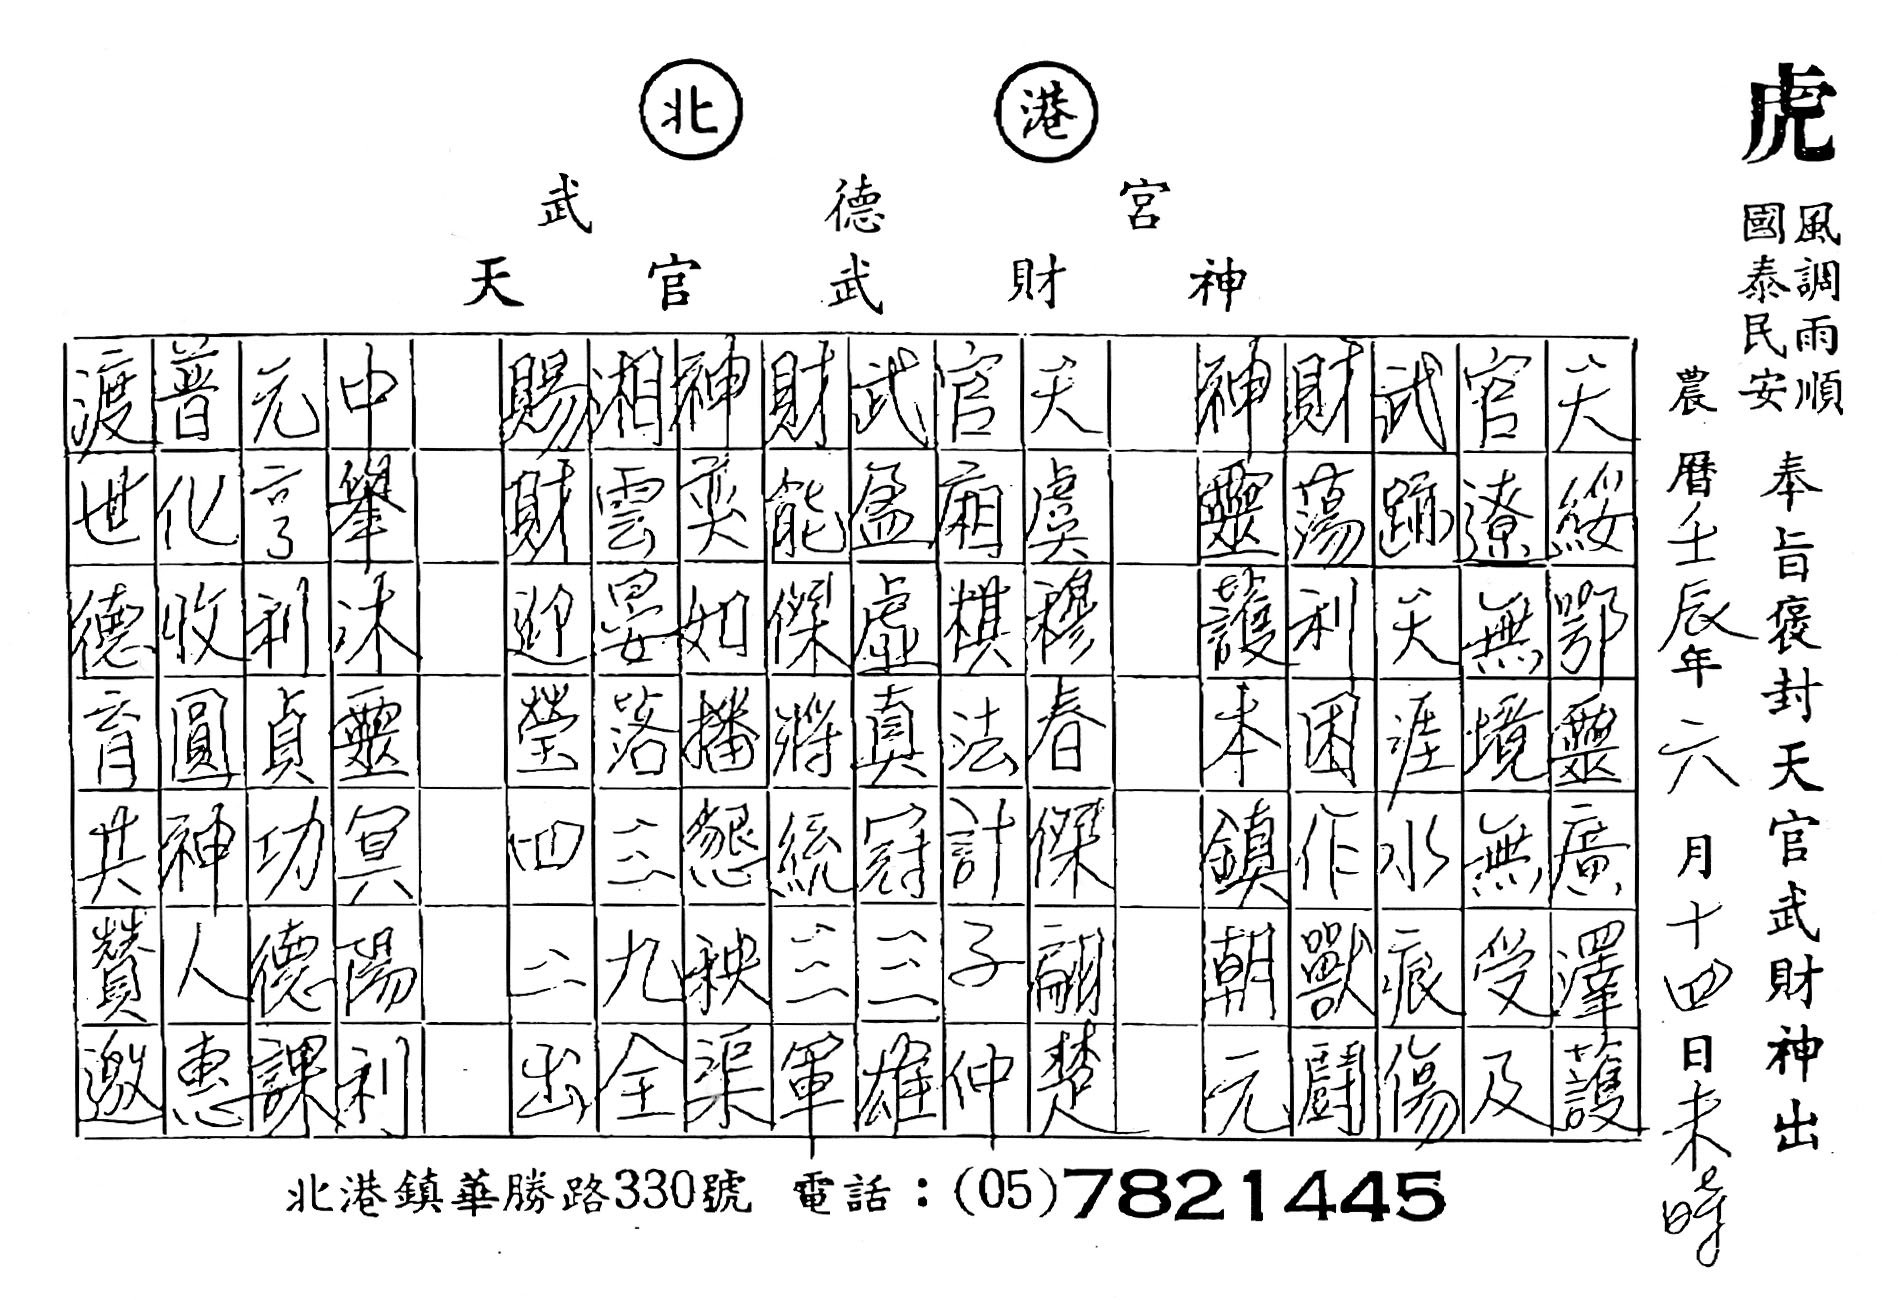 北港
武德宮
天官武財神
虎
風調雨順
國泰民安
奉旨褒封天官武財神出
農曆壬辰年六月十四日未時
天綏鄂靈廣澤護
官遼無境無受及
武蹤天涯水痕傷
財蕩利困作獸鬪
神靈護本鎮朝元
天虞穆春傑翩楚
官廟棋法計子仲
武盈虛真冠三雄
財能傑將統三軍
神奕如播懇秧渠
湘雲晏落三九全
賜財迎瑩四二出
中舉沐靈冥陽利
元亨利貞功德課
普化收圓神人惠
渡世德育共贊邀
北港鎮華勝路330號 電話：(05)7821445